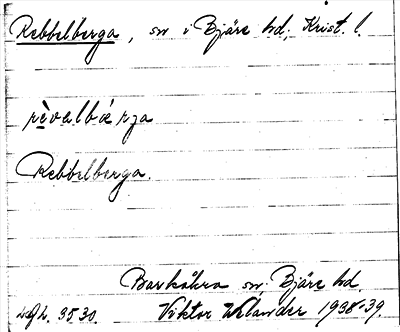 Rebbelberga, sn i Bjäre hd, Krist. l.
rèvalbærja
Rebbelberga.
Barkåkra sn, Bjäre hd.
Viktor Wilander 1938-39.